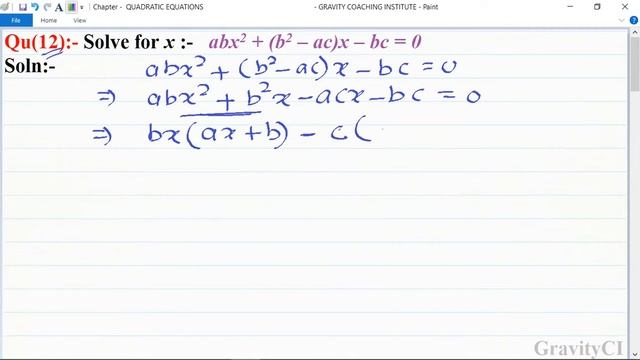 Chapter - QUADRATIC EQUATIONS - GRAVITY COACHING INSTITUTE - Paint
File Home View
Qu(12):- Solve for x :- abx² + (b² – ac)x – bc = 0
Soln:- abx² + (b² – ac)x – bc = 0
⇒ abx² + b²x – acx – bc = 0
⇒ bx(ax + b) – c(
GravityCI